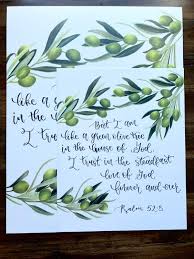 like a g
in the
I tru
But I am
like a green olive tree
in the house of God.
I trust in the steadfast
love of God
forever and ever
Psalm 52:8